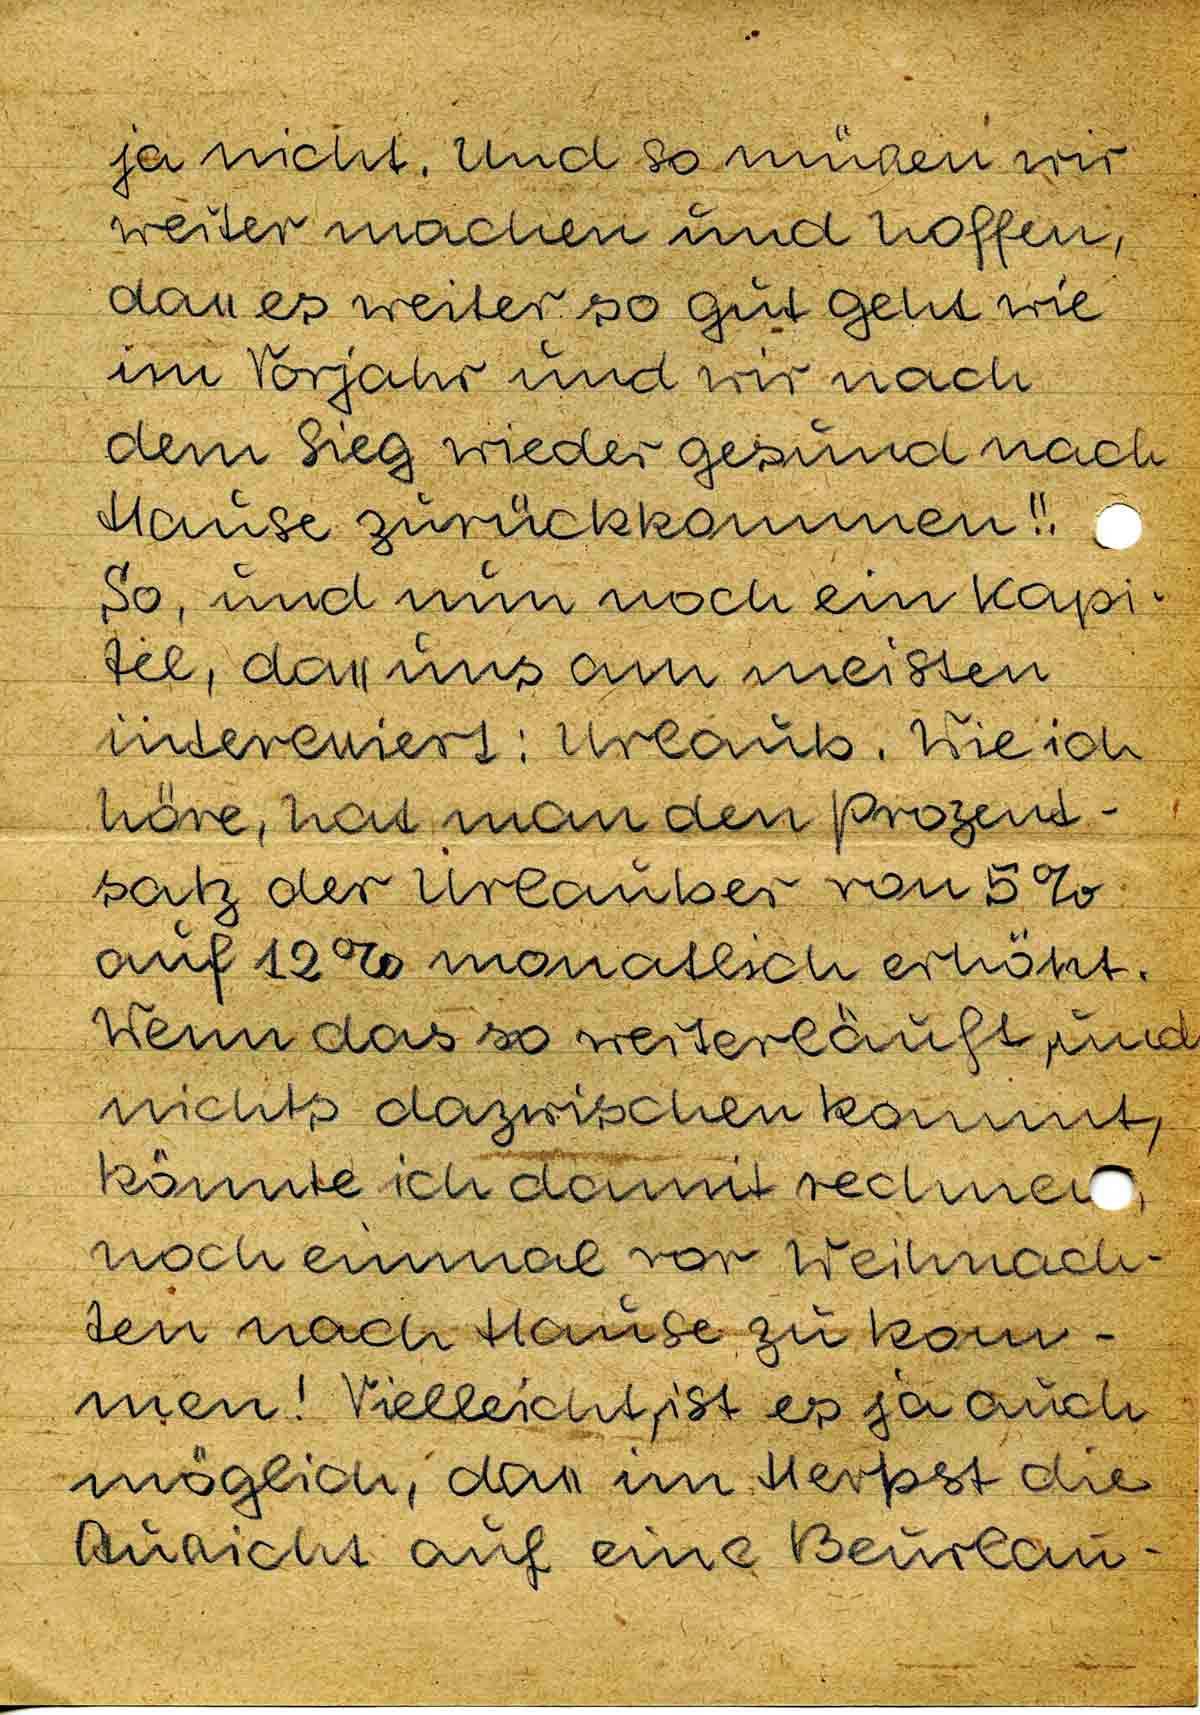 ja nicht. Und so müssen wir
weiter machen und hoffen,
dass es weiter so gut geht wie
im Vorjahr und wir nach
dem Sieg wieder gesund nach
Hause zurückkommen!!
So, und nun noch ein Kapi-
tel, dass uns am meisten
interessiert: Urlaub. Wie ich
höre, hat man den Prozent-
satz der Urlauber von 5%
auf 12% monatlich erhöht.
Wenn das so weiterläuft, und
nichts dazwischen kommt,
könnte ich damit rechnen,
noch einmal vor Weihnach-
ten nach Hause zu kom-
men! Vielleicht, ist es ja auch
möglich, dass im Herpst die
Aussicht auf eine Beurlau-